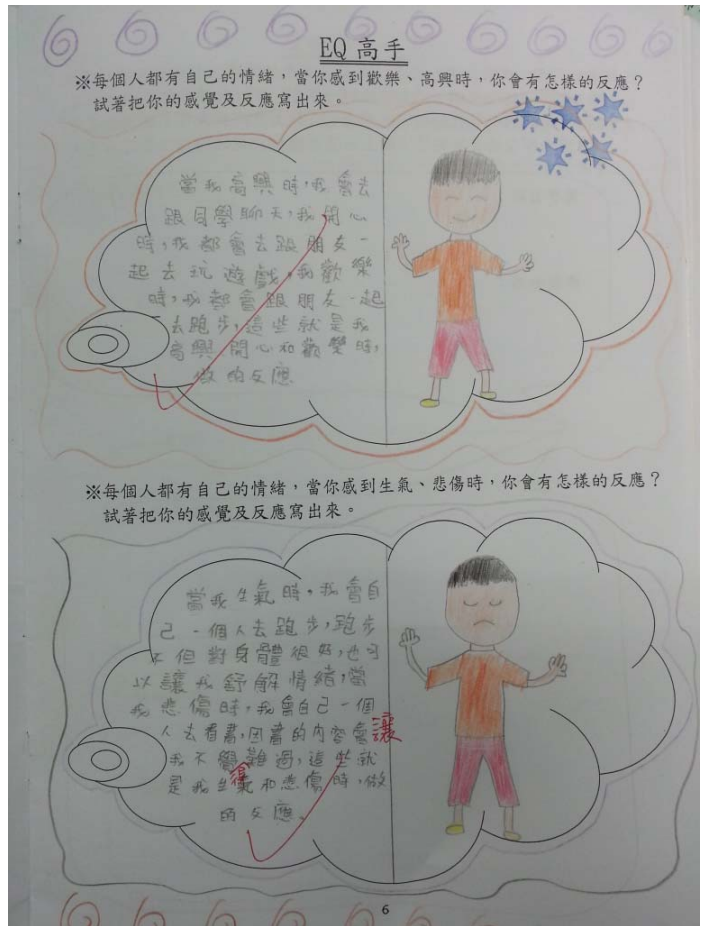 EQ 高手
※每個人都有自己的情緒，當你感到歡樂、高興時，你會有怎樣的反應？
試著把你的感覺及反應寫出來。
當我高興時，我會去
跟同學聊天，我開心
時，我都會去跟朋友一
起去玩遊戲，我歡樂
時，我都會跟朋友一起
去跑步，這些就是我
高興開心和歡樂時，
做的反應
※每個人都有自己的情緒，當你感到生氣、悲傷時，你會有怎樣的反應？
試著把你的感覺及反應寫出來。
當我生氣時，我會自
己一個人去跑步，跑步
不但對身體很好，也可
以讓我舒解情緒，當
我悲傷時，我會自己一個
人去看書，因書的內容會讓
我不覺得難過，這些就
是我生氣和悲傷時，做
的反應。
6